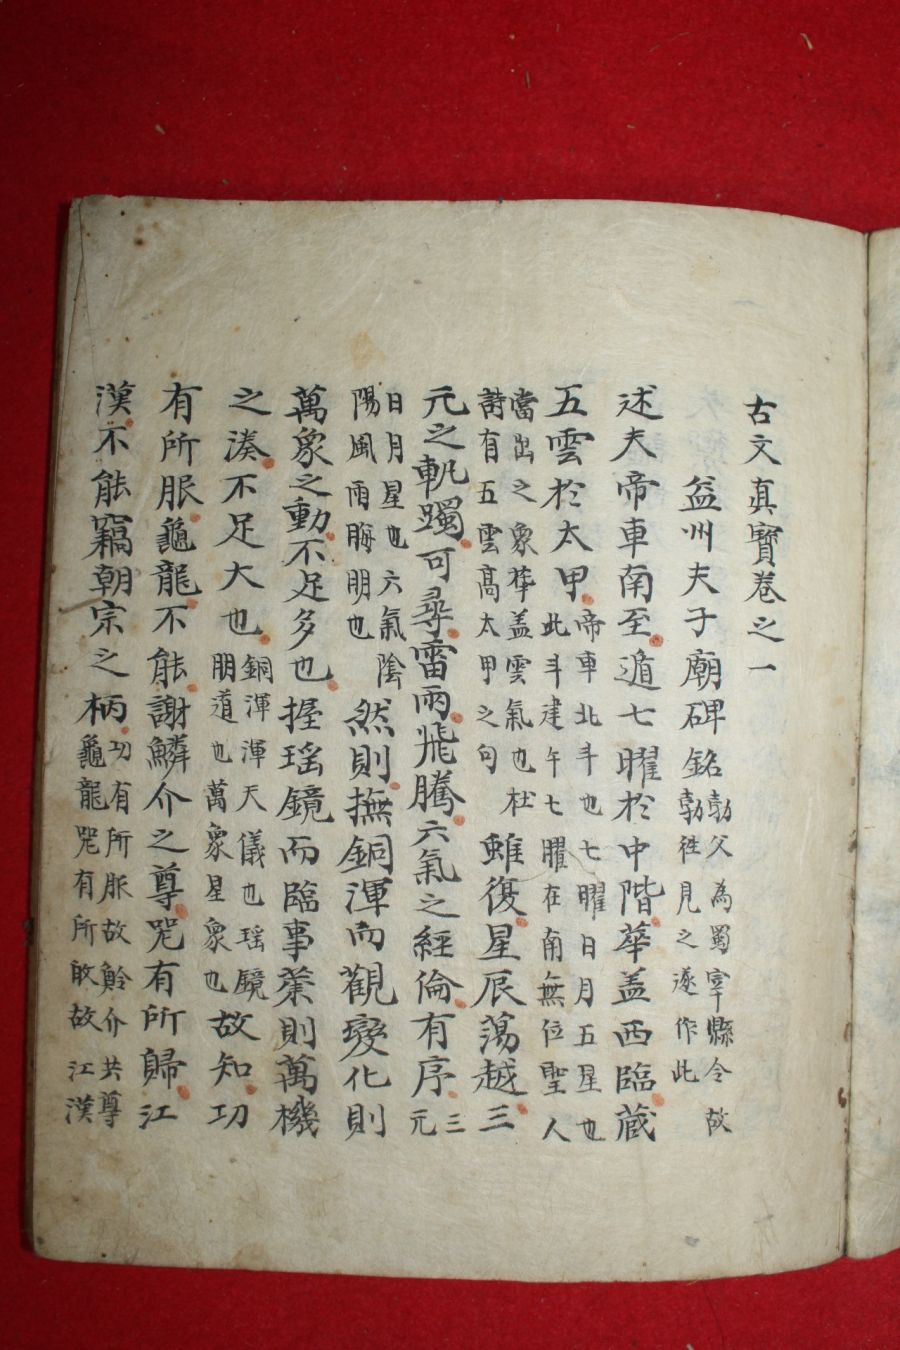 古文真寳卷之一
益州夫子廟碑銘勃父為蜀宰縣令故勃徃見之遂作此
述夫帝車南至遁七曜於中階華盖西臨蔵
五雲於太甲帝車北斗也七曜日月五星也此斗建午七曜在南無位聖人
當出之象華盖雲氣也杜詩有五雲高太甲之句雖復星辰蕩越三
元之軌躅可尋雷雨飛騰六氣之經倫有序三元
日月星也六氣陰陽風雨晦明也然則撫銅渾而觀變化則
萬象之動不足多也握瑶鏡而臨事業則萬機
之湊不足大也銅渾渾天儀也瑶鏡朋道也萬象星象也故知功
有所服龜龍不能謝鱗介之尊咒有所歸江
漢不能竊朝宗之柄功有所服故鱗介共尊龜龍咒有所敀故江漢